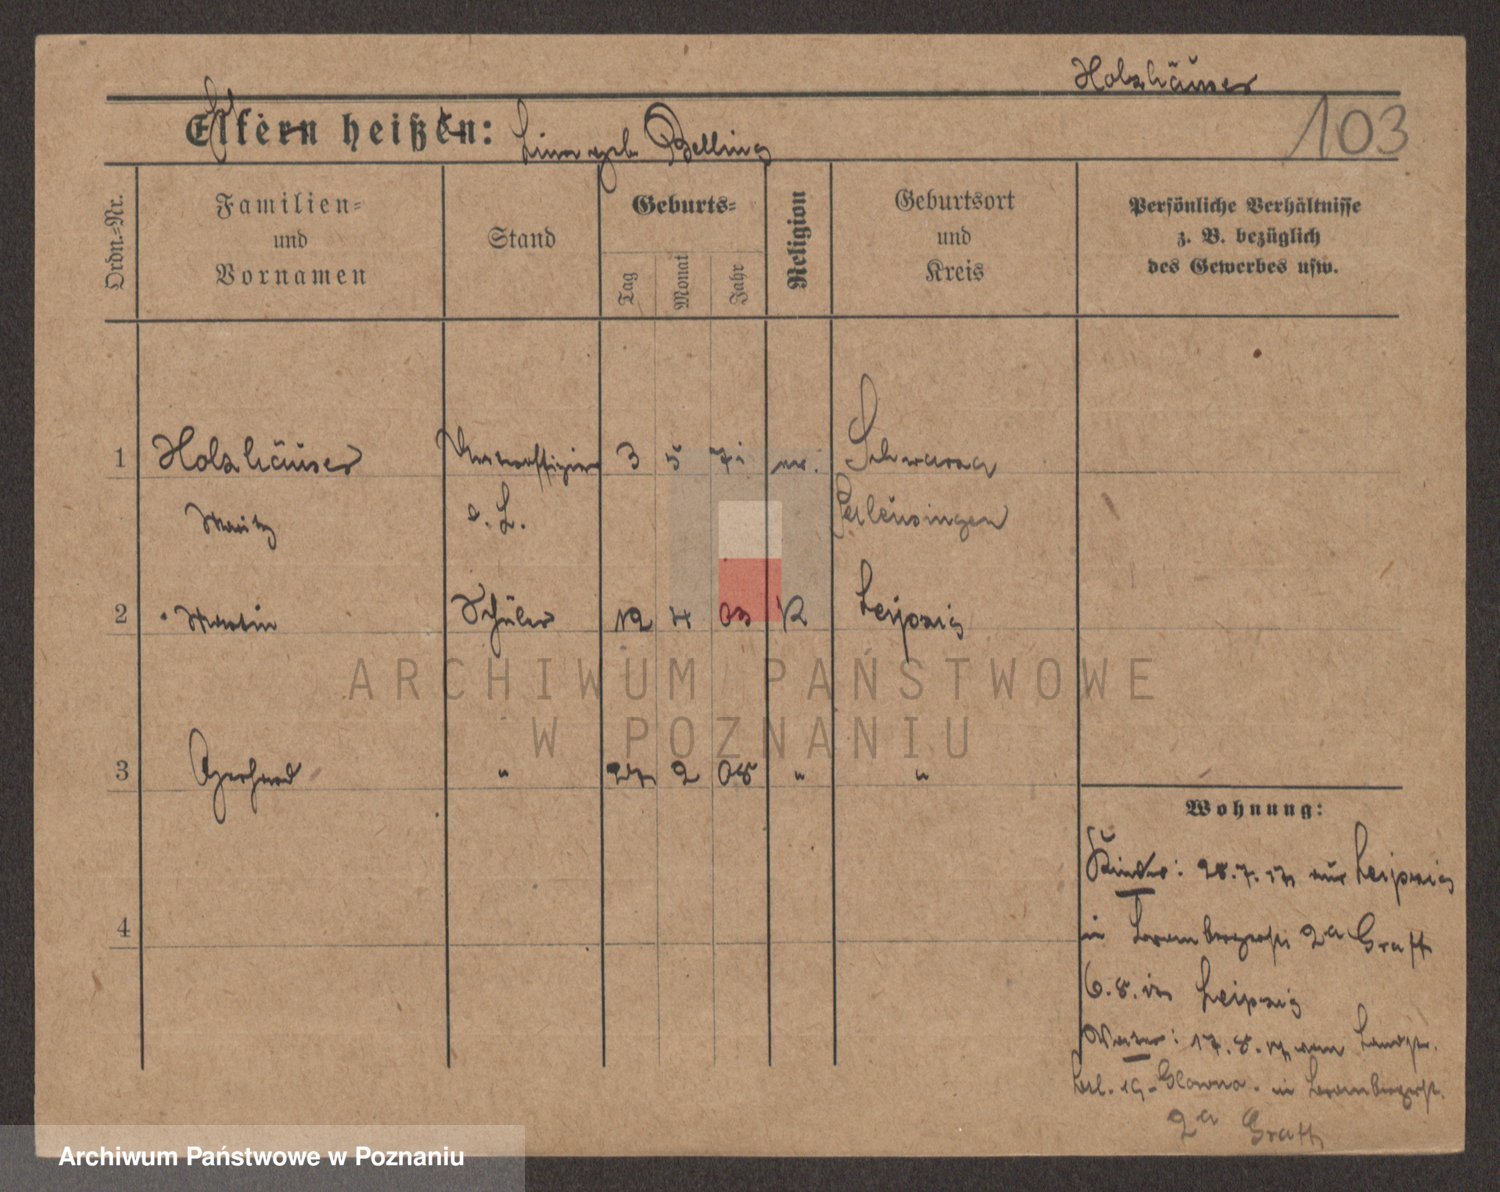 Holzhäuser
103
Eltern heißen: Lina geb. Belling
Ordn.-Nr.
Familien-
und
Vornamen
Stand
Geburts-
Tag
Monat
Jahr
Religion
Geburtsort
und
Kreis
Persönliche Verhältnisse
z. B. bezüglich
des Gewerbes usw.
1 Holzhäuser Unteroffizier 3 5 71 ev. Schwarza
Moritz d. L.
2 Martin Schüler 12 4 03 Leipzig
3 Gerhard " 2 08 " "
4
Wohnung:
Kinder: 28.7.17 aus Leipzig
in 2a Graff
6.8. in Leipzig
Vater: 17.8.17 Landst.
Glowno. in
2a Graff
ARCHIWUM PAŃSTWOWE
W POZNANIU
Archiwum Państwowe w Poznaniu